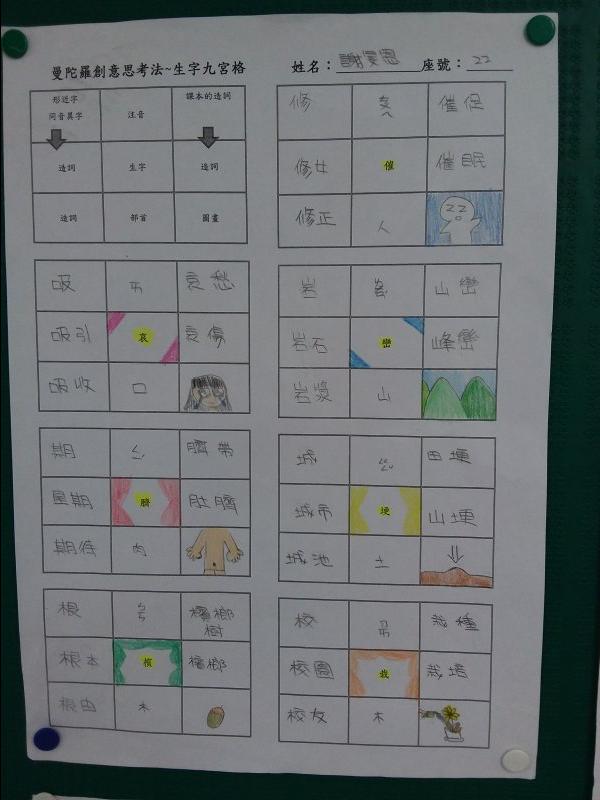 曼陀羅創意思考法~生字九宮格
姓名： 座號：22
形近字
同音異字
注音
課本的造詞
造詞
生字
造詞
造詞
部首
圖畫
修
催促
修女
催
催眠
修正
人
吸
ㄞ
哀愁
吸引
哀
哀傷
吸收
口
岩
山巒
岩石
巒
峰巒
岩漿
山
期
ㄑㄧˊ
臍帶
星期
臍
肚臍
期待
肉
城
ㄍㄥˇ
田埂
城市
埂
山埂
城池
土
根
檳榔樹
根本
檳
檳榔
根由
木
校
ㄗㄞ
栽種
校園
栽
栽培
校友
木